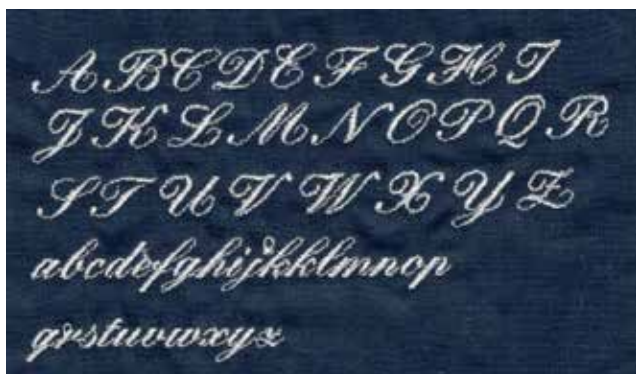 A B C D E F G H I
J K L M N O P Q R
S T U V W X Y Z
abcdefghijkklmnop
qrstuvwxyz